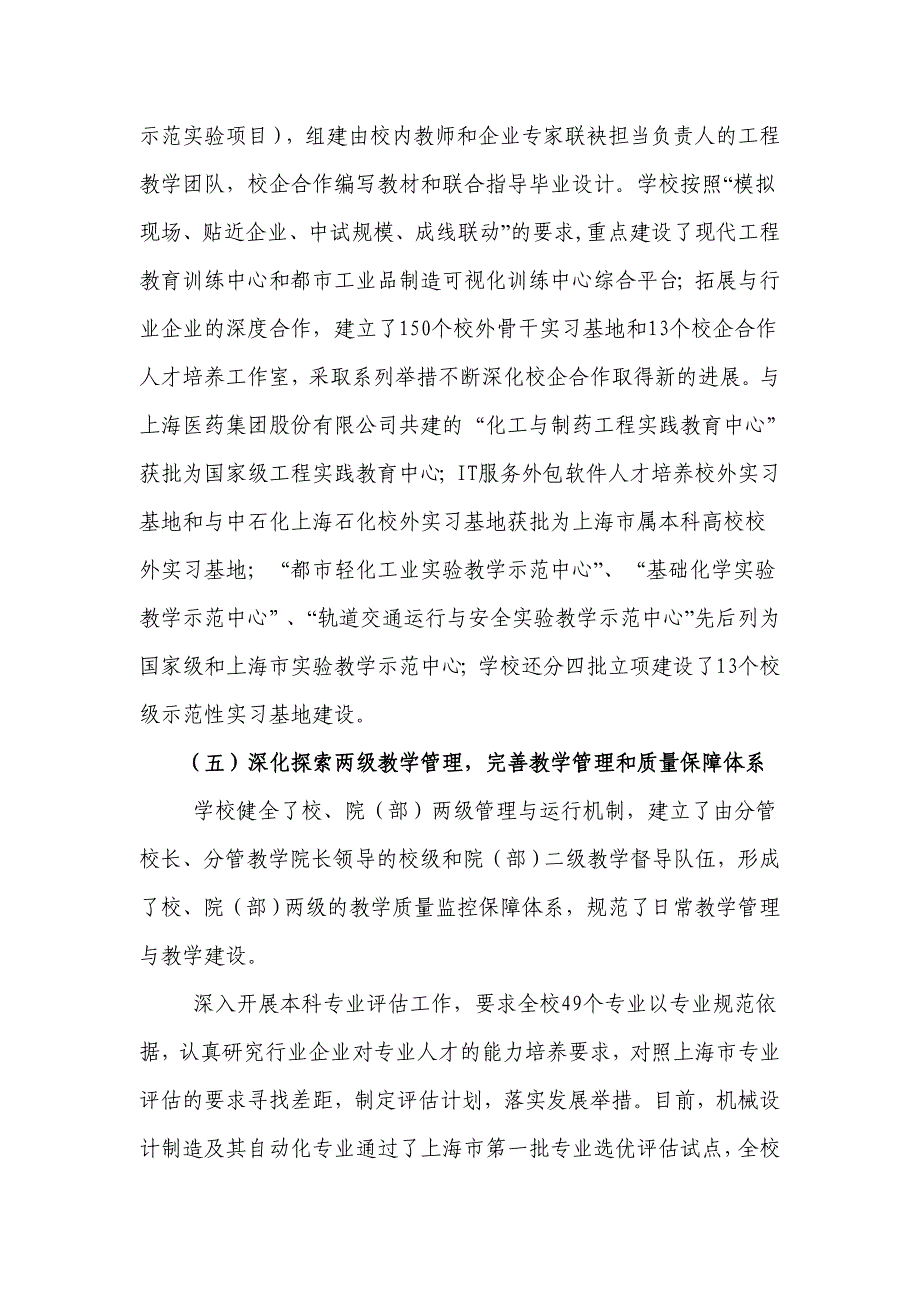 示范实验项目)，组建由校内教师和企业专家联袂担当负责人的工程
教学团队，校企合作编写教材和联合指导毕业设计。学校按照“模拟
现场、贴近企业、中试规模、成线联动”的要求,重点建设了现代工程
教育训练中心和都市工业品制造可视化训练中心综合平台；拓展与行
业企业的深度合作，建立了150个校外骨干实习基地和13个校企合作
人才培养工作室，采取系列举措不断深化校企合作取得新的进展。与
上海医药集团股份有限公司共建的“化工与制药工程实践教育中心”
获批为国家级工程实践教育中心；IT服务外包软件人才培养校外实习
基地和与中石化上海石化校外实习基地获批为上海市属本科高校校
外实习基地；“都市轻化工业实验教学示范中心”、“基础化学实验
教学示范中心”、“轨道交通运行与安全实验教学示范中心”先后列为
国家级和上海市实验教学示范中心；学校还分四批立项建设了13个校
级示范性实习基地建设。
（五）深化探索两级教学管理，完善教学管理和质量保障体系
学校健全了校、院（部）两级管理与运行机制，建立了由分管
校长、分管教学院长领导的校级和院（部）二级教学督导队伍，形成
了校、院（部）两级的教学质量监控保障体系，规范了日常教学管理
与教学建设。
深入开展本科专业评估工作，要求全校49个专业以专业规范依
据，认真研究行业企业对专业人才的能力培养要求，对照上海市专业
评估的要求寻找差距，制定评估计划，落实发展举措。目前，机械设
计制造及其自动化专业通过了上海市第一批专业选优评估试点，全校